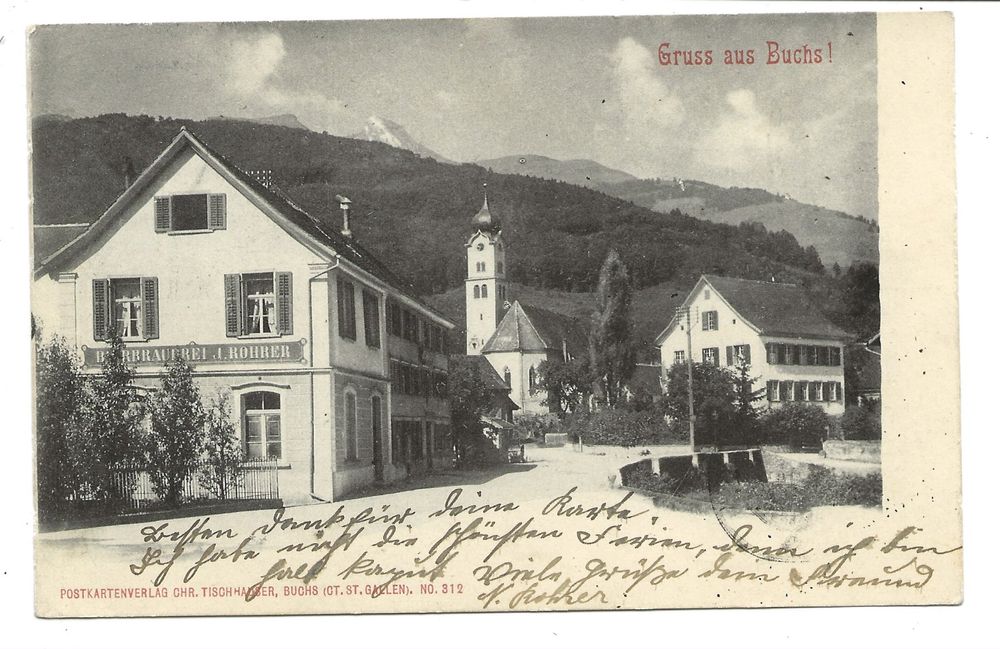 Gruss aus Buchs!
BIERBRAUEREI J. ROHRER
Besten Dank für deine Karte.
Ich habe nicht die schönsten Ferien, denn ich bin
halb kaput Viele Grüße dem Freund
N. Rohrer
POSTKARTENVERLAG CHR. TISCHHAUSER, BUCHS (CT. ST. GALLEN). NO. 312